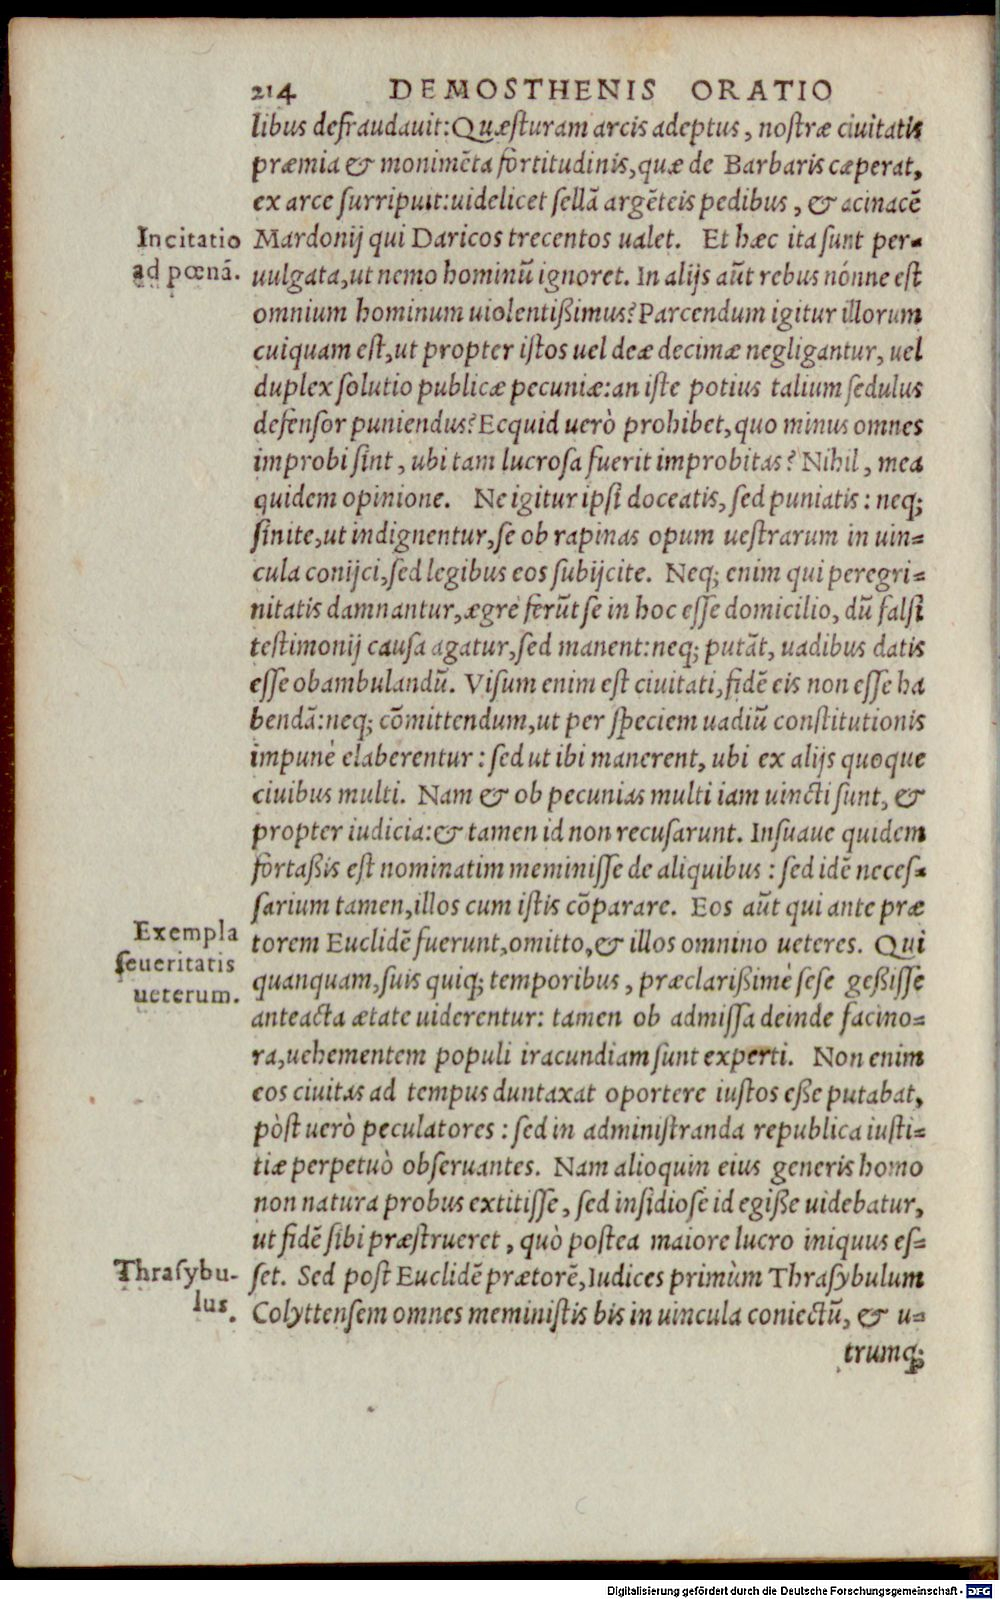 214 DEMOSTHENIS ORATIO
libus defraudauit: Quæsturam arcis adeptus, nostræ ciuitatis
præmia & monimēta fortitudinis, quæ de Barbaris cæperat,
ex arce surripuit: uidelicet sellā argēteis pedibus, & acinacē
Incitatio
ad pœnā.
Mardonij qui Daricos trecentos ualet. Et hæc ita sunt per-
uulgata, ut nemo hominū ignoret. In alijs aūt rebus nónne est
omnium hominum uiolentißimus? Parcendum igitur illorum
cuiquam est, ut propter istos uel deæ decimæ negligantur, uel
duplex solutio publicæ pecuniæ: an iste potius talium sedulus
defensor puniendus? Ecquid uerò prohibet, quo minus omnes
improbi sint, ubi tam lucrosa fuerit improbitas? Nihil, mea
quidem opinione. Ne igitur ipsi doceatis, sed puniatis: neq;
sinite, ut indignentur, se ob rapinas opum uestrarum in uin=
cula conijci, sed legibus eos subijcite. Neq; enim qui peregri=
nitatis damnantur, ægrè ferūt se in hoc esse domicilio, dū falsi
testimonij causa agatur, sed manent: neq; putāt, uadibus datis
esse obambulandū. Visum enim est ciuitati, fidē eis non esse ha
bendā: neq; cōmittendum, ut per speciem uadiū constitutionis
impunè elaberentur: sed ut ibi manerent, ubi ex alijs quoque
ciuibus multi. Nam & ob pecunias multi iam uincti sunt, &
propter iudicia: & tamen id non recusarunt. Insuaue quidem
fortaßis est nominatim meminisse de aliquibus: sed idē neces-
sarium tamen, illos cum istis cōparare. Eos aūt qui ante præ
Exempla
seueritatis
ueterum.
torem Euclidē fuerunt, omitto, & illos omnino ueteres. Qui
quanquam, suis quiq; temporibus, præclarißimè sese geßisse
anteacta ætate uiderentur: tamen ob admissa deinde facino=
ra, uehementem populi iracundiam sunt experti. Non enim
eos ciuitas ad tempus duntaxat oportere iustos eße putabat,
pòst uerò peculatores: sed in administranda republica iusti=
tiæ perpetuò obseruantes. Nam alioquin eius generis homo
non natura probus extitisse, sed insidiosè id egiße uidebatur,
ut fidē sibi præstrueret, quò postea maiore lucro iniquus es=
Thrasybu-
lus.
set. Sed post Euclidē prætorē, Iudices primùm Thrasybulum
Colyttensem omnes meministis bis in uincula coniectū, & u=
trumq;
Digitalisierung gefördert durch die Deutsche Forschungsgemeinschaft - DFG